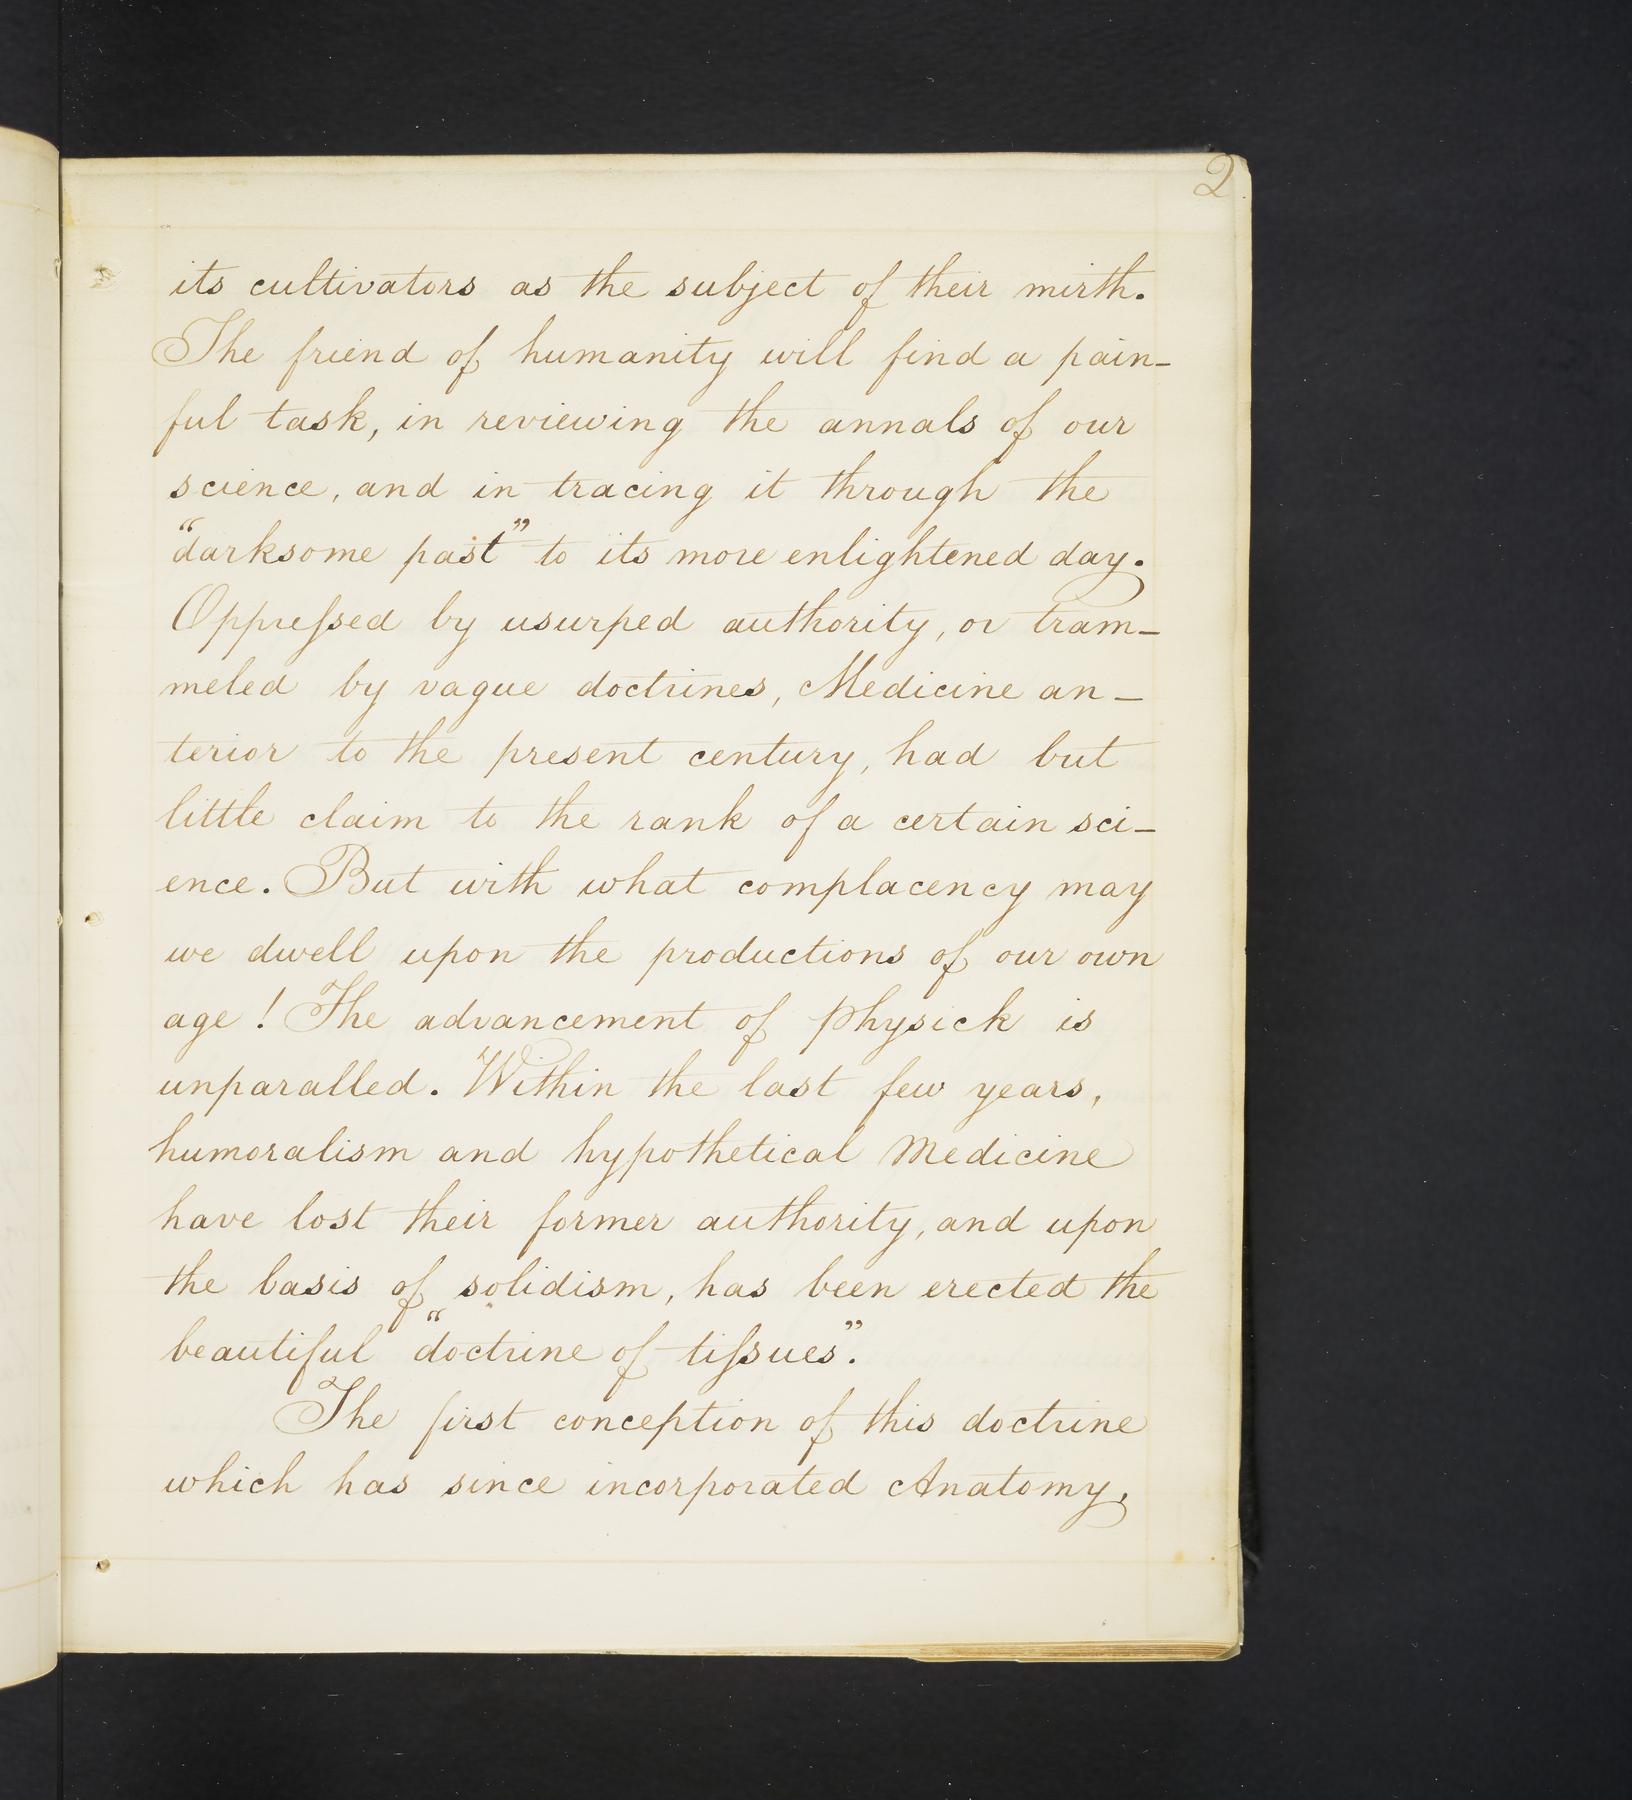 2
its cultivators as the subject of their mirth.
The friend of humanity will find a pain-
ful task, in reviewing the annals of our
science, and in tracing it through the
“darksome past” to its more enlightened day.
Oppreſsed by usurped authority, or tram-
meled by vague doctrines, Medicine an-
terior to the present century, had but
little claim to the rank of a certain sci-
ence. But with what complacency may
we dwell upon the productions of our own
age! The advancement of physick is
unparalled. Within the last few years,
humoralism and hypothetical Medicine
have lost their former authority, and upon
the basis of solidism, has been erected the
beautiful “doctrine of tiſsues”.
The first conception of this doctrine
which has since incorporated Anatomy,